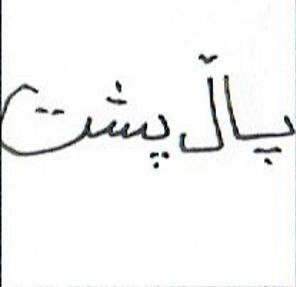 پاڵ پشت